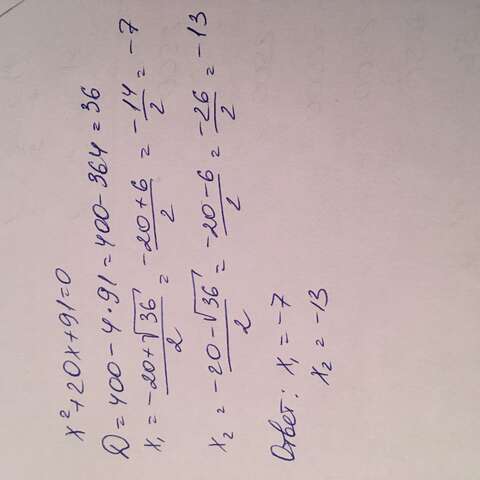 x²+20x+91=0
D=400-4·91=400-364=36
x₁ = (-20+√36)/2 = (-20+6)/2 = -14/2 = -7
x₂ = (-20-√36)/2 = (-20-6)/2 = -26/2 = -13
Ответ: x₁ = -7
x₂ = -13